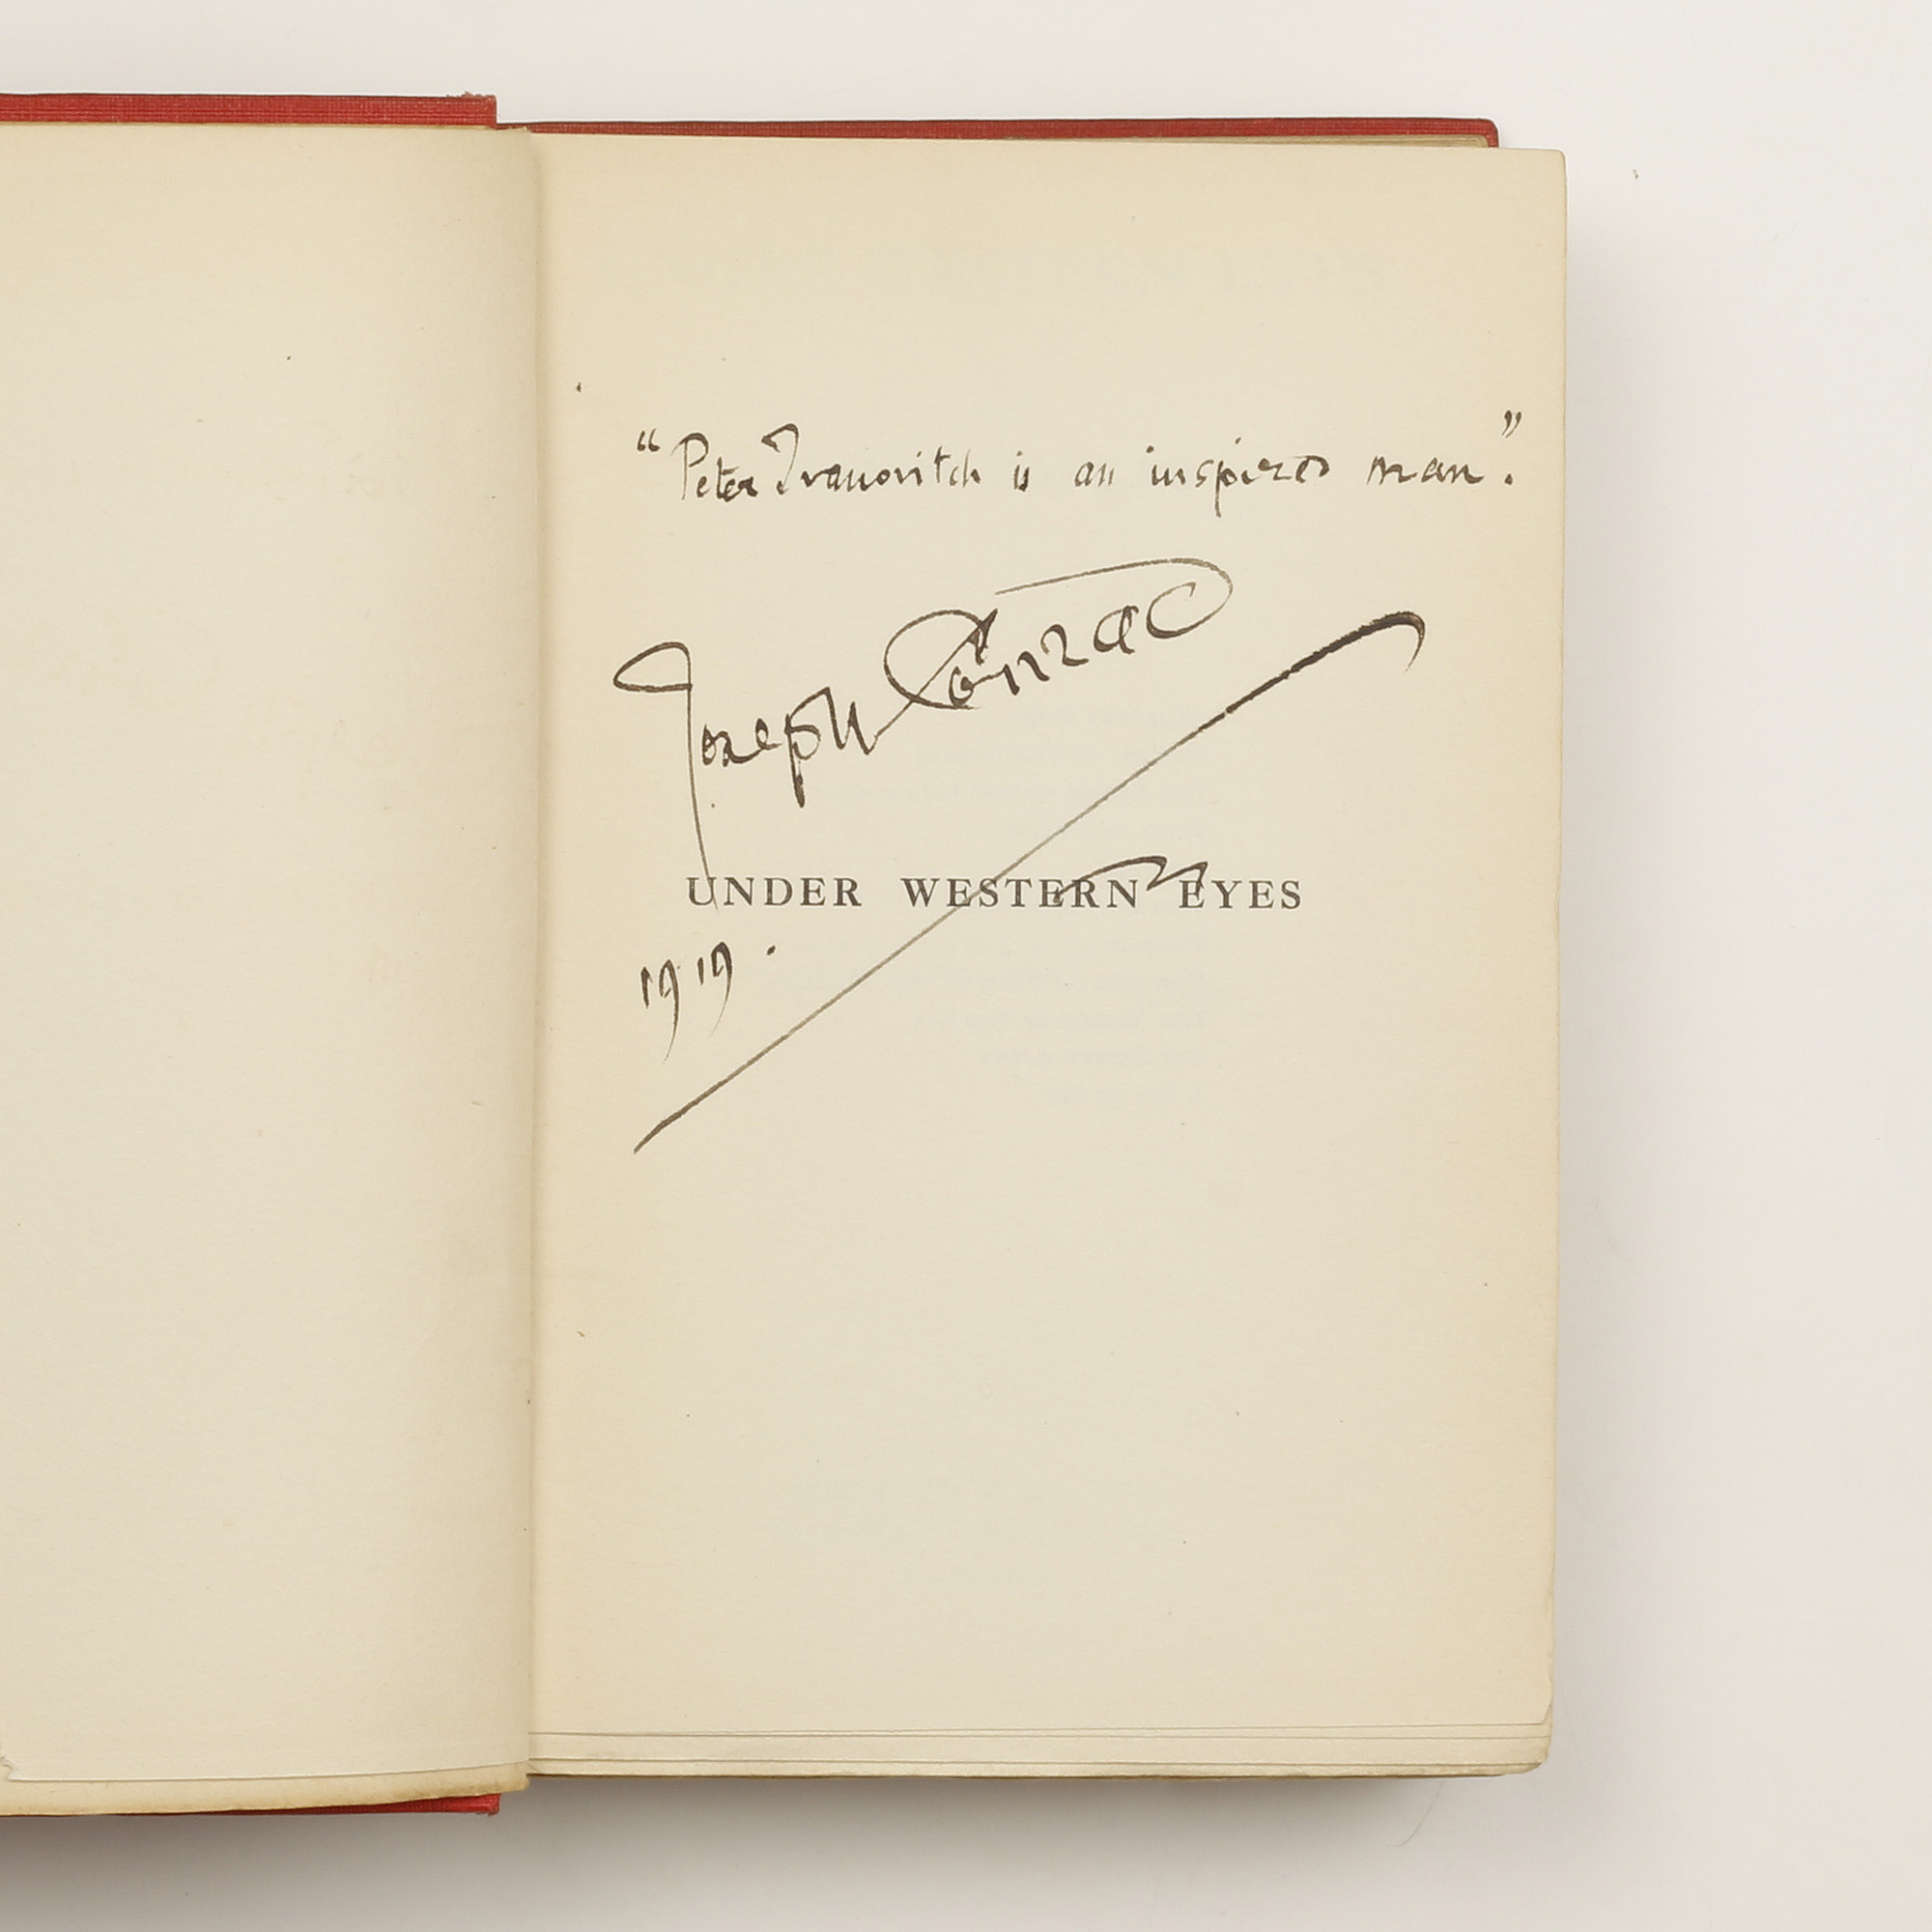 “Peter Ivanovitch is an inspired man.”
Joseph Conrad
UNDER WESTERN EYES
1919.